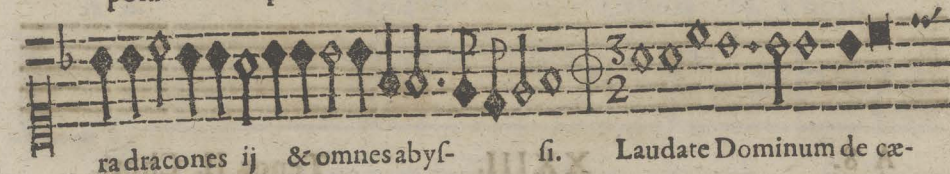 ra dracones ij & omnes abyſ- ſi. Laudate Dominum de cæ-